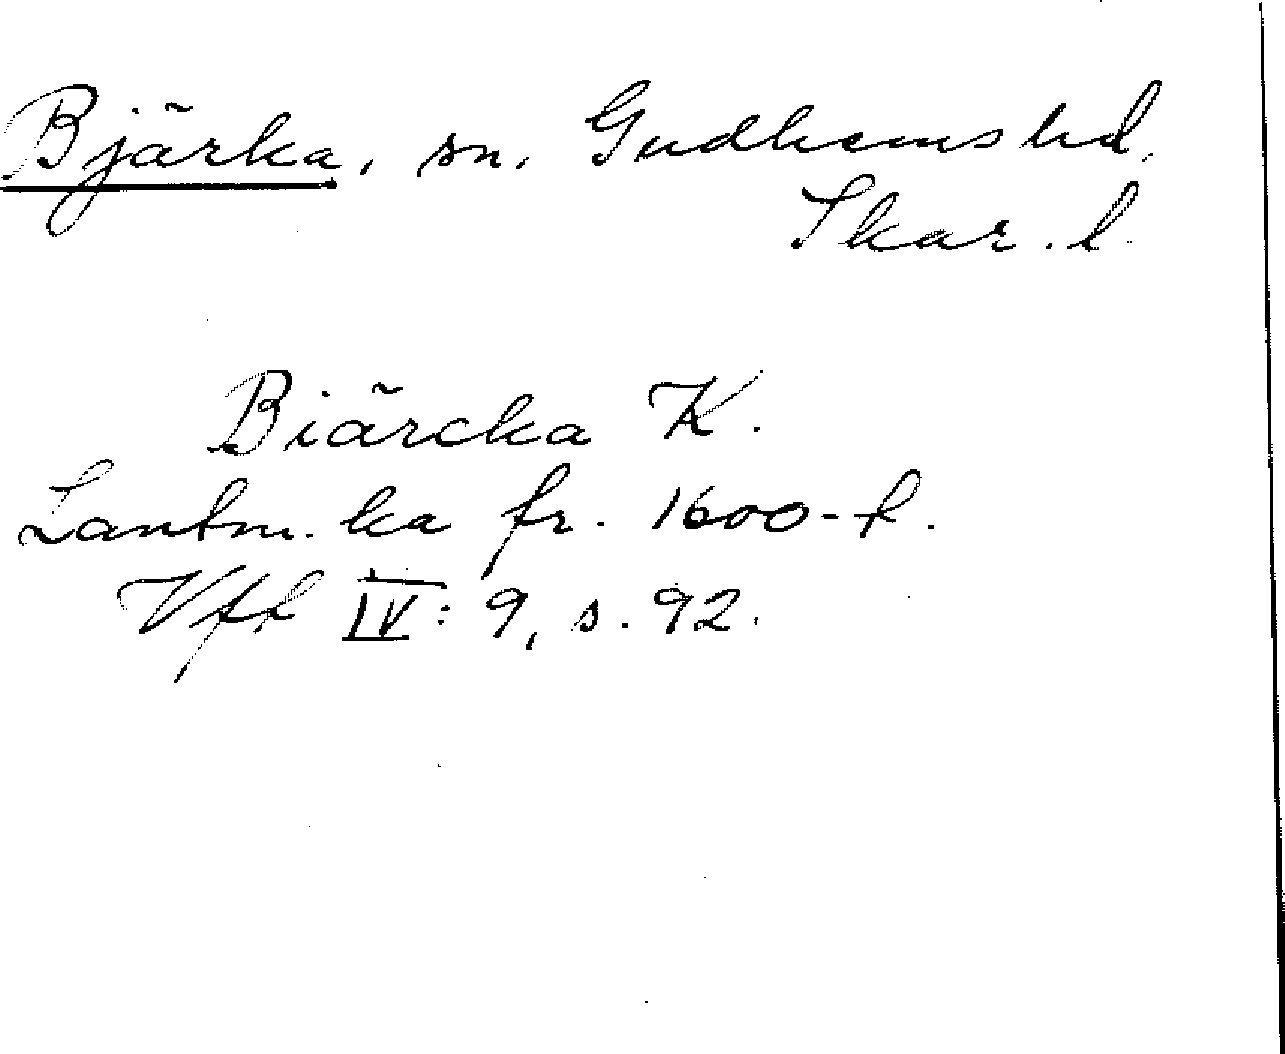 Bjärka, sn. Gudhems hd.
Skar. l.
Biärcka K.
Lantm. ka fr. 1600-t.
Vft IV: 9, s. 92.